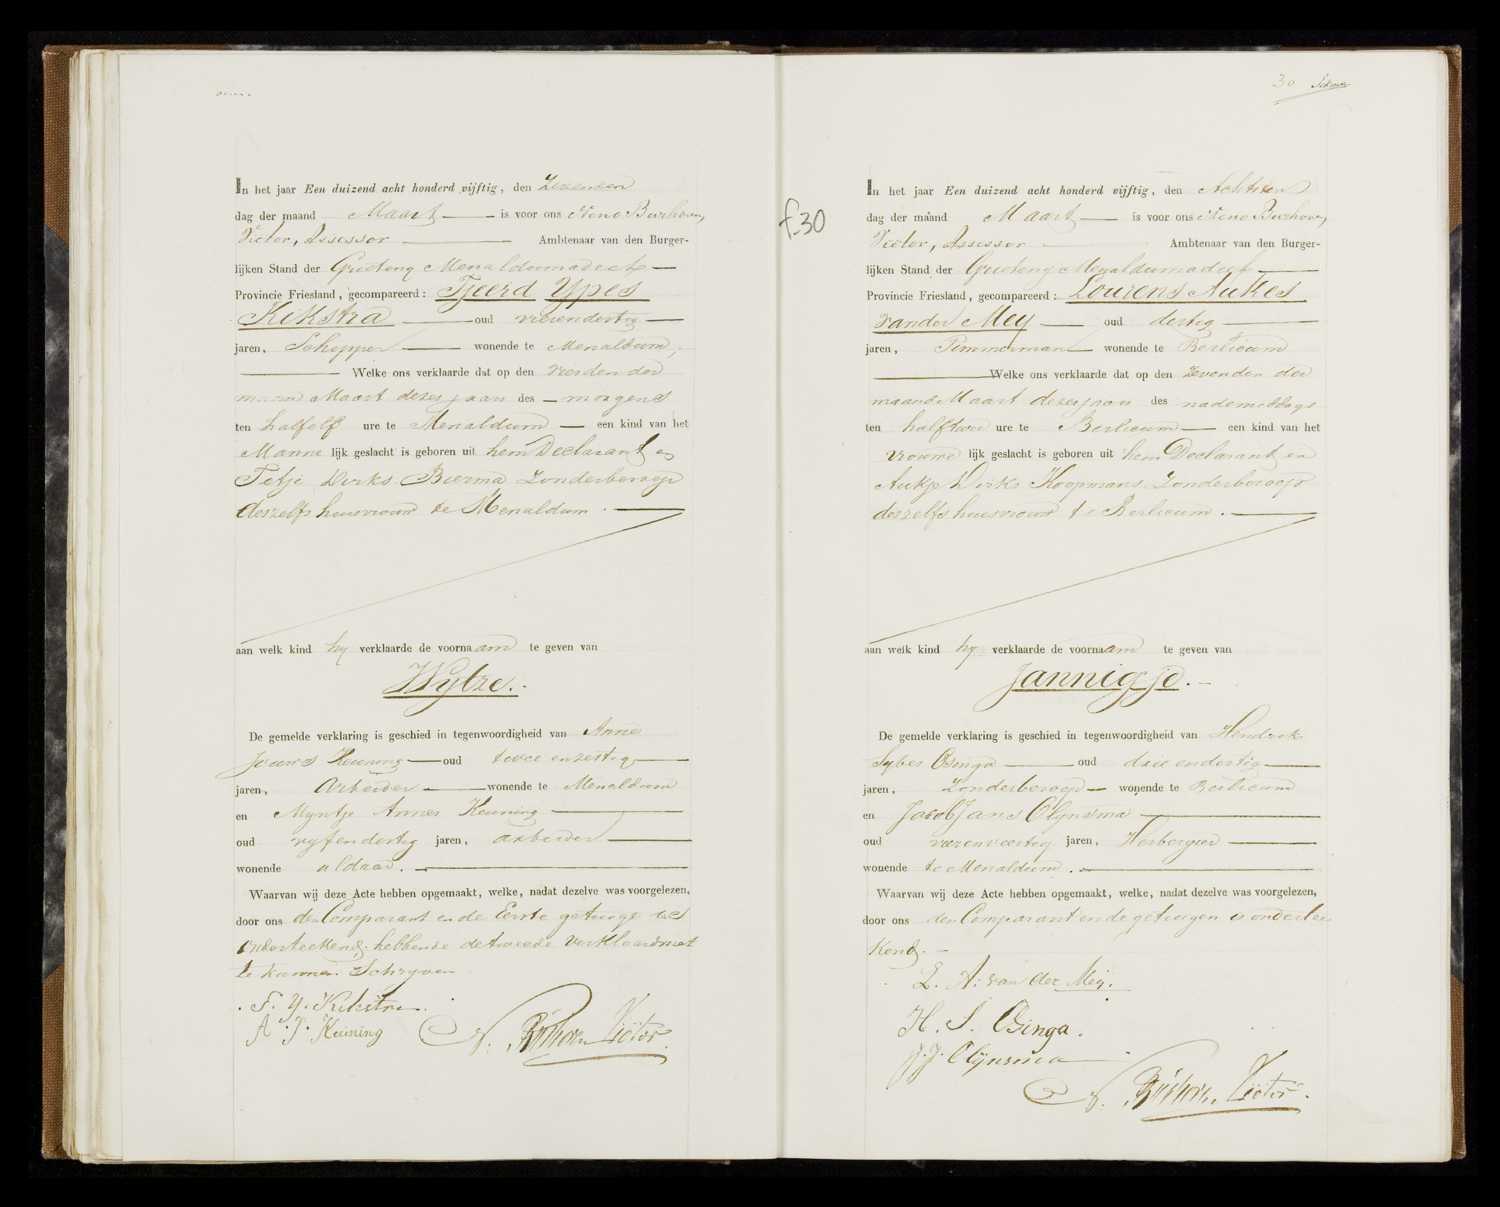 In het jaar Een duizend acht honderd vijftig, den Zestienden
dag der maand Maart is voor ons Neno Burhoven
Viëtor, Assessor Ambtenaar van den Burger-
lijken Stand der Grieteny Menaldumadeel
Provincie Friesland, gecompareerd: Tjeerd Ypes
Kikstra oud vierendertig
jaren, Schipper wonende te Menaldum,
Welke ons verklaarde dat op den vierden der
maand Maart dezes jaars des morgens
ten halfelf ure te Menaldum een kind van het
Manne lijk geslacht is geboren uit hem Declarant en
Tetje Dirks Bierma Zonderberoep
deszelfs huisvrouw te Menaldum.
aan welk kind hy verklaarde de voornaam te geven van
Wytze.
De gemelde verklaring is geschied in tegenwoordigheid van Anne
Jouws Keuning oud twee enzestig
jaren, Arbeider wonende te Menaldum
en Myntje Annes Keuning
oud vyfendertig jaren, arbeider
wonende aldaar.
Waarvan wij deze Acte hebben opgemaakt, welke, nadat dezelve was voorgelezen,
door ons den Comparant en de Eerste getuige is
onderteekend, hebbende de tweede verklaard niet
te kunnen Schryven
T. Y. Kikstra.
A. J. Keuning
N. Burhoven Viëtor.
f.30
30
In het jaar Een duizend acht honderd vijftig, den Achttien
dag der maand Maart is voor ons Neno Burhoven
Viëtor, Assessor Ambtenaar van den Burger-
lijken Stand der Grieteny Menaldumadeel
Provincie Friesland, gecompareerd: Lourens Aukes
van der Mey oud dertig
jaren, Timmerman wonende te Berlicum
Welke ons verklaarde dat op den zevenden der
maand Maart dezesjaars des nademiddags
ten halftwee ure te Berlicum een kind van het
vrouwe lijk geslacht is geboren uit hem Declarant en
Aukje Dirks Koopmans Zonderberoep
deszelfs huisvrouw te Berlicum.
aan welk kind hy verklaarde de voornaam te geven van
Jannigje.
De gemelde verklaring is geschied in tegenwoordigheid van Hendrik
Sybes Osinga oud drie endertig
jaren, Zonderberoep wonende te Berlicum
en Jacob Jans Olynsma
oud vierenveertig jaren, Herbergier
wonende te Menaldum.
Waarvan wij deze Acte hebben opgemaakt, welke, nadat dezelve was voorgelezen,
door ons den Comparant en de getuigen is ondertee
kend.
L. A. van der Mey.
H. S. Osinga.
J. J. Olynsma
N. Burhoven Viëtor.